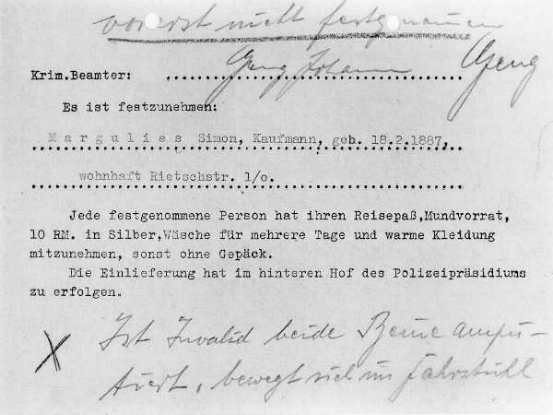 vorerst nicht festgenommen
Krim.Beamter: Geng Johann Geng
Es ist festzunehmen:
Margulies Simon, Kaufmann, geb. 18.2.1887,
wohnhaft Rietschstr. 1/o.
Jede festgenommene Person hat ihren Reisepaß,Mundvorrat,
10 RM. in Silber,Wäsche für mehrere Tage und warme Kleidung
mitzunehmen, sonst ohne Gepäck.
Die Einlieferung hat im hinteren Hof des Polizeipräsidiums
zu erfolgen.
X Ist Invalid beide Beine ampu-
tiert, bewegt sich im Fahrstuhl